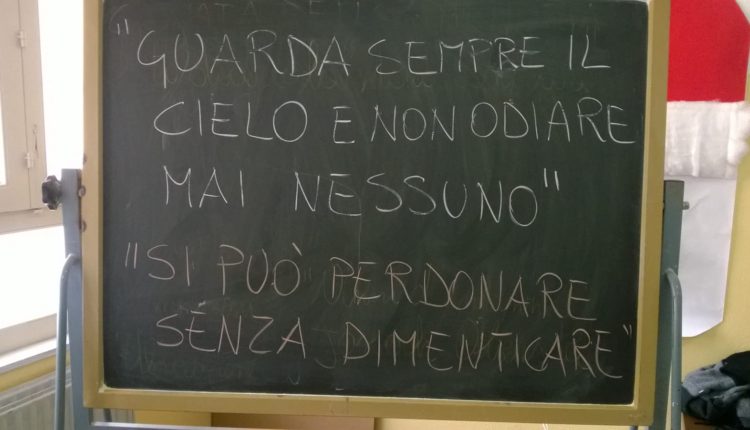 "GUARDA SEMPRE IL
CIELO E NON ODIARE
MAI NESSUNO"
"SI PUÒ PERDONARE
SENZA DIMENTICARE"